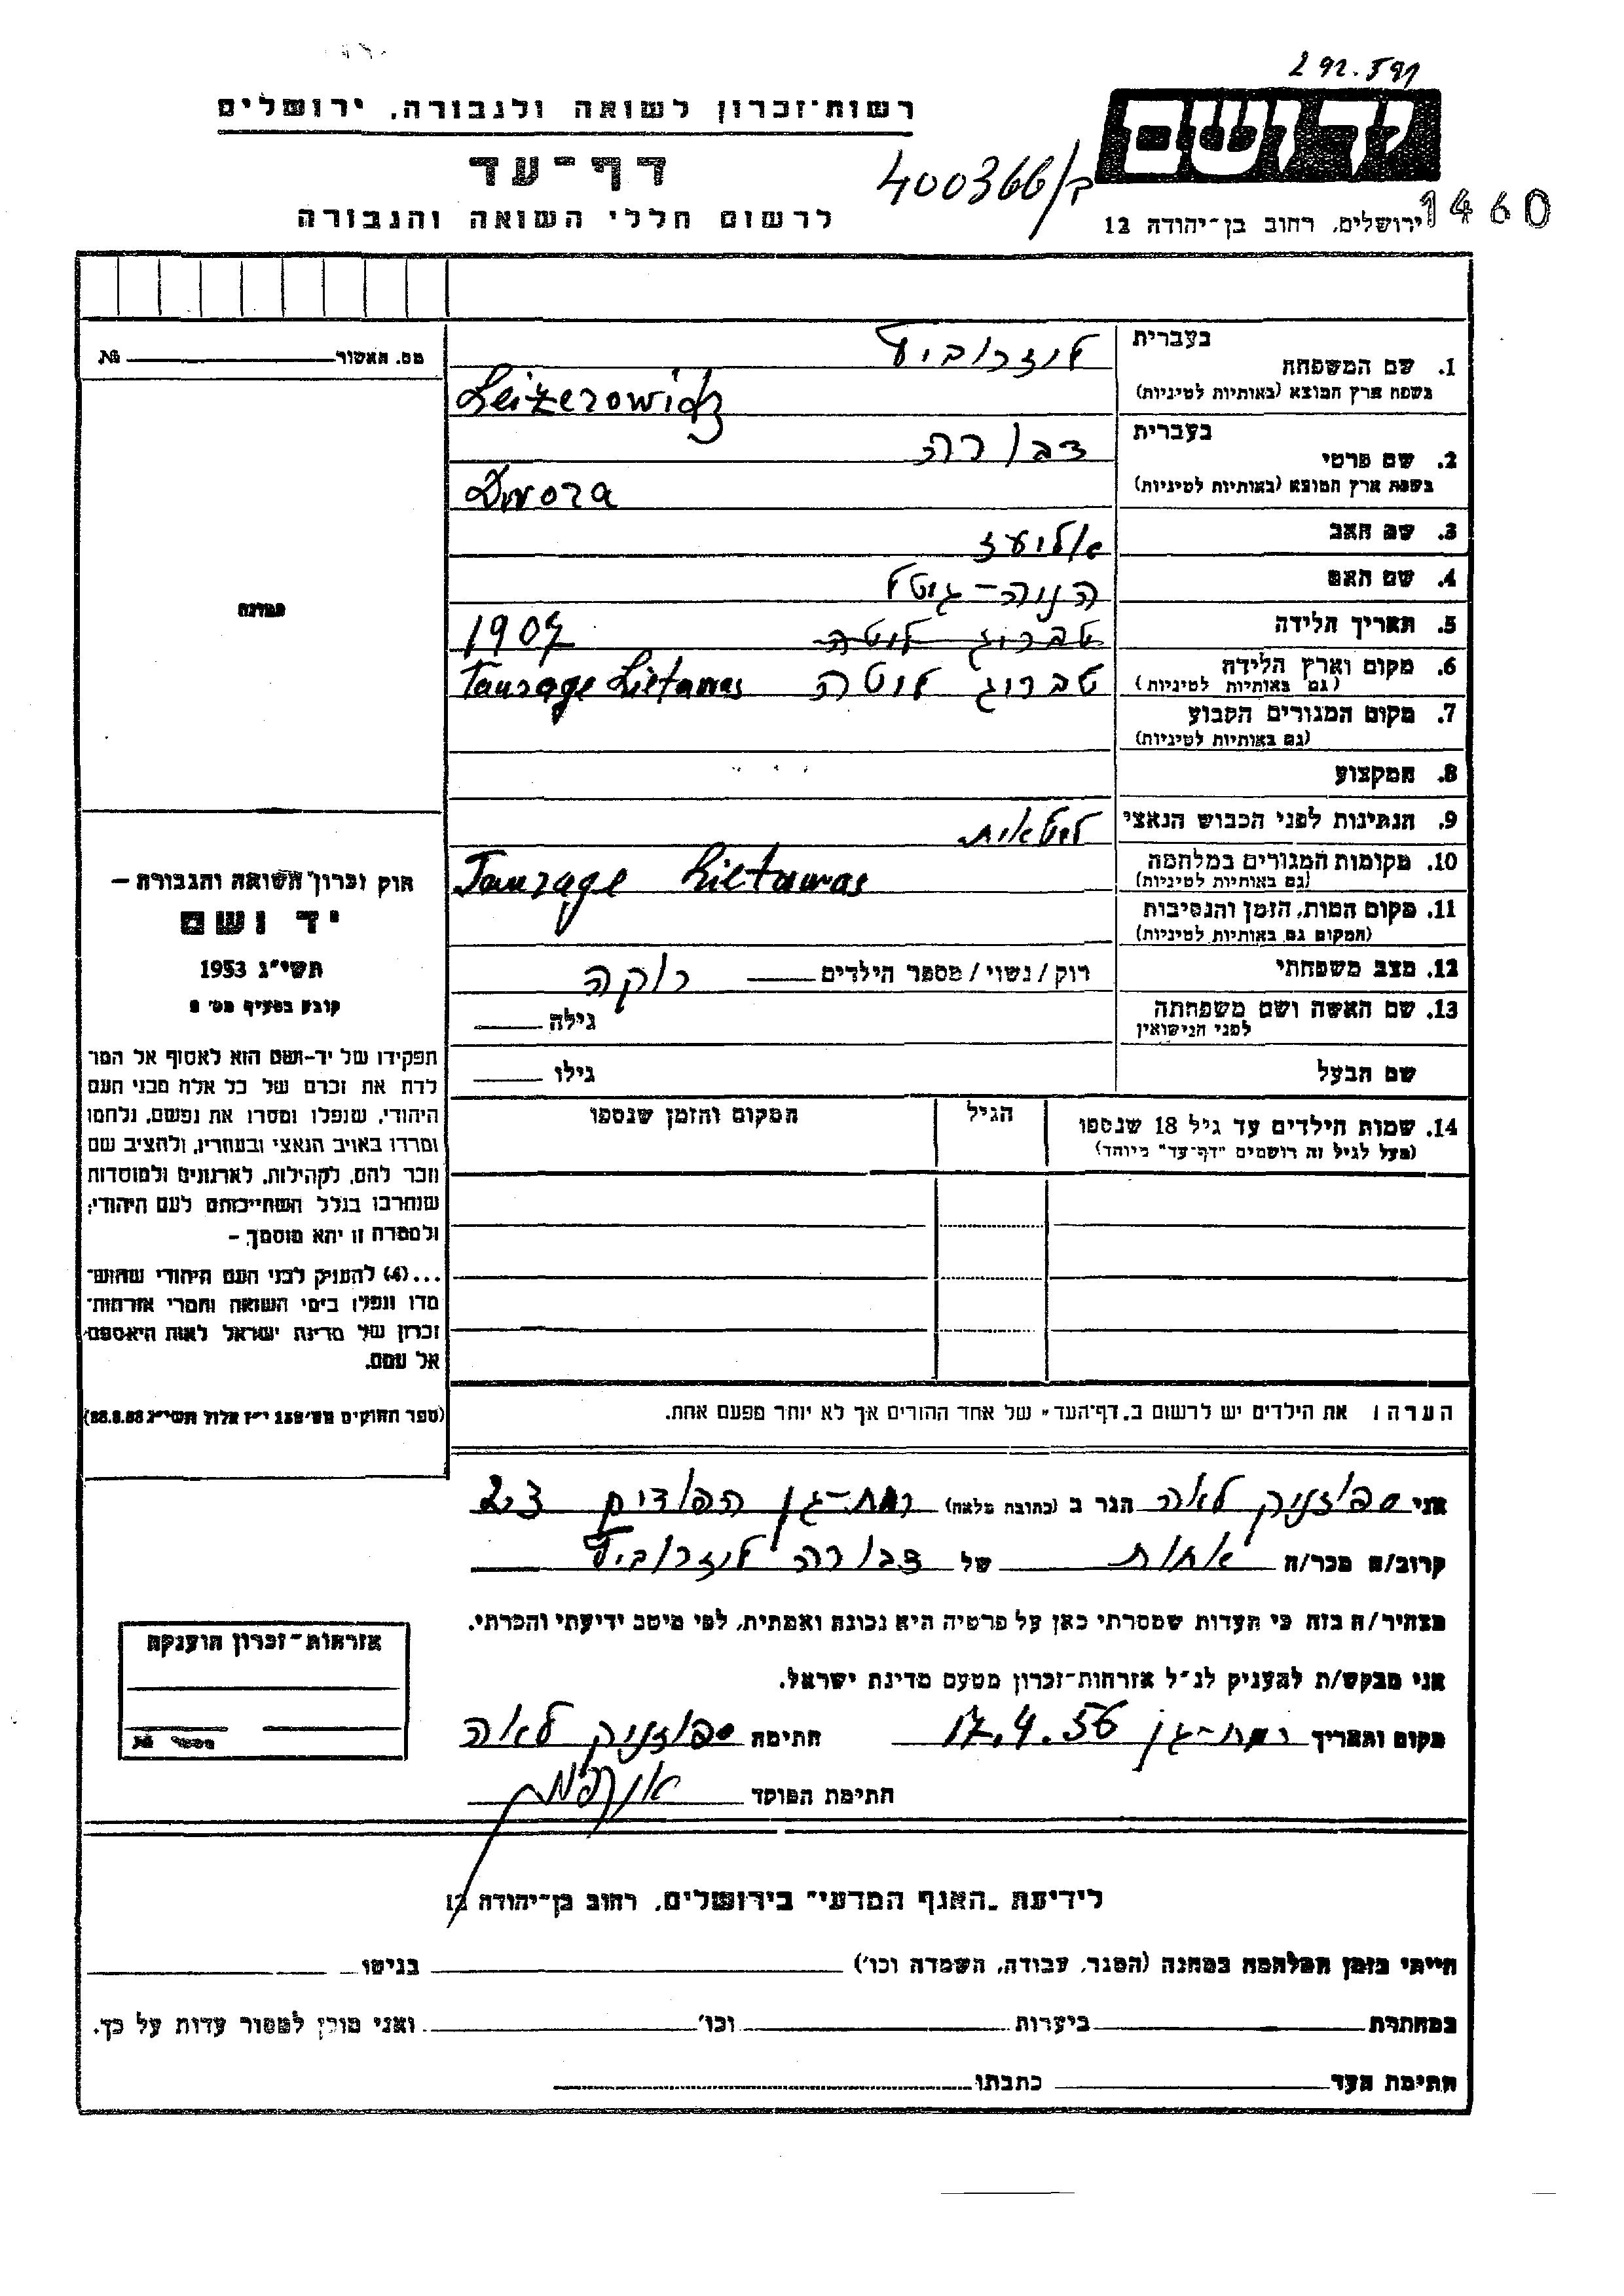 292.591
רשות-זכרון לשואה ולגבורה, ירושלים
יד ושם
דף-עד
400366/ב
לרשום חללי השואה והגבורה
ירושלים, רחוב בן-יהודה 12
1460
מס. האשור № ______
בעברית
1. שם המשפחה
בשפת ארץ המוצא (באותיות לטיניות)
ליזרוביץ
Leizerowicz
בעברית
2. שם פרטי
בשפת ארץ המוצא (באותיות לטיניות)
דבורה
Dwora
3. שם האב אליעז
4. שם האם הניה-גיטל
5. תאריך הלידה טברוג ליטה 1907
6. מקום וארץ הלידה טברוג ליטה Taurage Lietawas
(גם באותיות לטיניות)
7. מקום המגורים הקבוע
(גם באותיות לטיניות)
8. המקצוע
9. הנתינות לפני הכבוש הנאצי ליטאית
10. מקומות המגורים במלחמה Taurage Lietawas
(גם באותיות לטיניות)
11. מקום המות, הזמן והנסיבות
(המקום גם באותיות לטיניות)
12. מצב משפחתי רוק / נשוי / מספר הילדים ____ רוקה
13. שם האשה ושם משפחתה
לפני הנישואין
גילה ____
שם הבעל גילו ____
14. שמות הילדים עד גיל 18 שנספו הגיל המקום והזמן שנספו
(מעל לגיל זה רושמים "דף-עד" מיוחד)
הערה: את הילדים יש לרשום ב"דף-העד" של אחד ההורים אך לא יותר מפעם אחת.
תמונה
חוק זכרון השואה והגבורה –
יד ושם
תשי"ג 1953
קובע בסעיף מס׳ 2
תפקידו של יד-ושם הוא לאסוף אל המו
לדת את זכרם של כל אלה מבני העם
היהודי, שנפלו ומסרו את נפשם, נלחמו
ומרדו באויב הנאצי ובעוזריו, ולהציב שם
וזכר להם, לקהילות, לארגונים ולמוסדות
שנחרבו בגלל השתייכותם לעם היהודי;
ולמטרה זו יהא מוסמך –
...(4) להעניק לבני העם היהודי שהוש-
מדו ונפלו בימי השואה והמרי אזרחות-
זכרון של מדינת ישראל לאות היאספם
אל עמם.
(ספר החוקים מס׳ 132 י"ז אלול תשי"ג 28.8.53)
אני ספוזניק לאה הגר ב (כתובת מלאה) רמת-גן הפודים 23
קרוב/ה מכר/ה אחות של דבורה ליזרוביץ
מצהיר/ה בזה כי העדות שמסרתי כאן על פרטיה היא נכונה ואמתית, לפי מיטב ידיעתי והכרתי.
אני מבקש/ת להעניק לנ"ל אזרחות-זכרון מטעם מדינת ישראל.
מקום ותאריך רמת-גן 17.4.56 חתימה ספוזניק לאה
חתימת הפוקד
אזרחות-זכרון הוענקה
מספר №
לידיעת "האגף המדעי" בירושלים, רחוב בן-יהודה 12
הייתי בזמן המלחמה במחנה (הסגר, עבודה, השמדה וכו׳) ______ בגיטו ______
במחתרת ______ ביערות ______ וכו׳ ______ ואני מוכן למסור עדות על כך.
חתימת העד ______ כתבתו ______